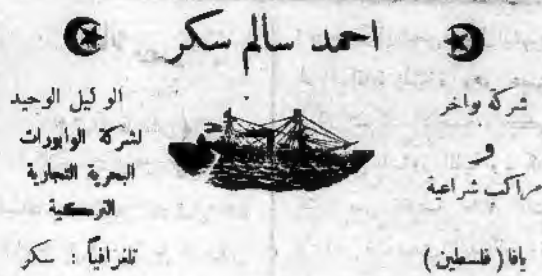 احمد سالم سكر
شركة بواخر
و
مراكب شراعية
يافا (فلسطين)
الوكيل الوحيد
لشركة الوابورات
البحرية التجارية
التركية
تلغرافياً : سكر